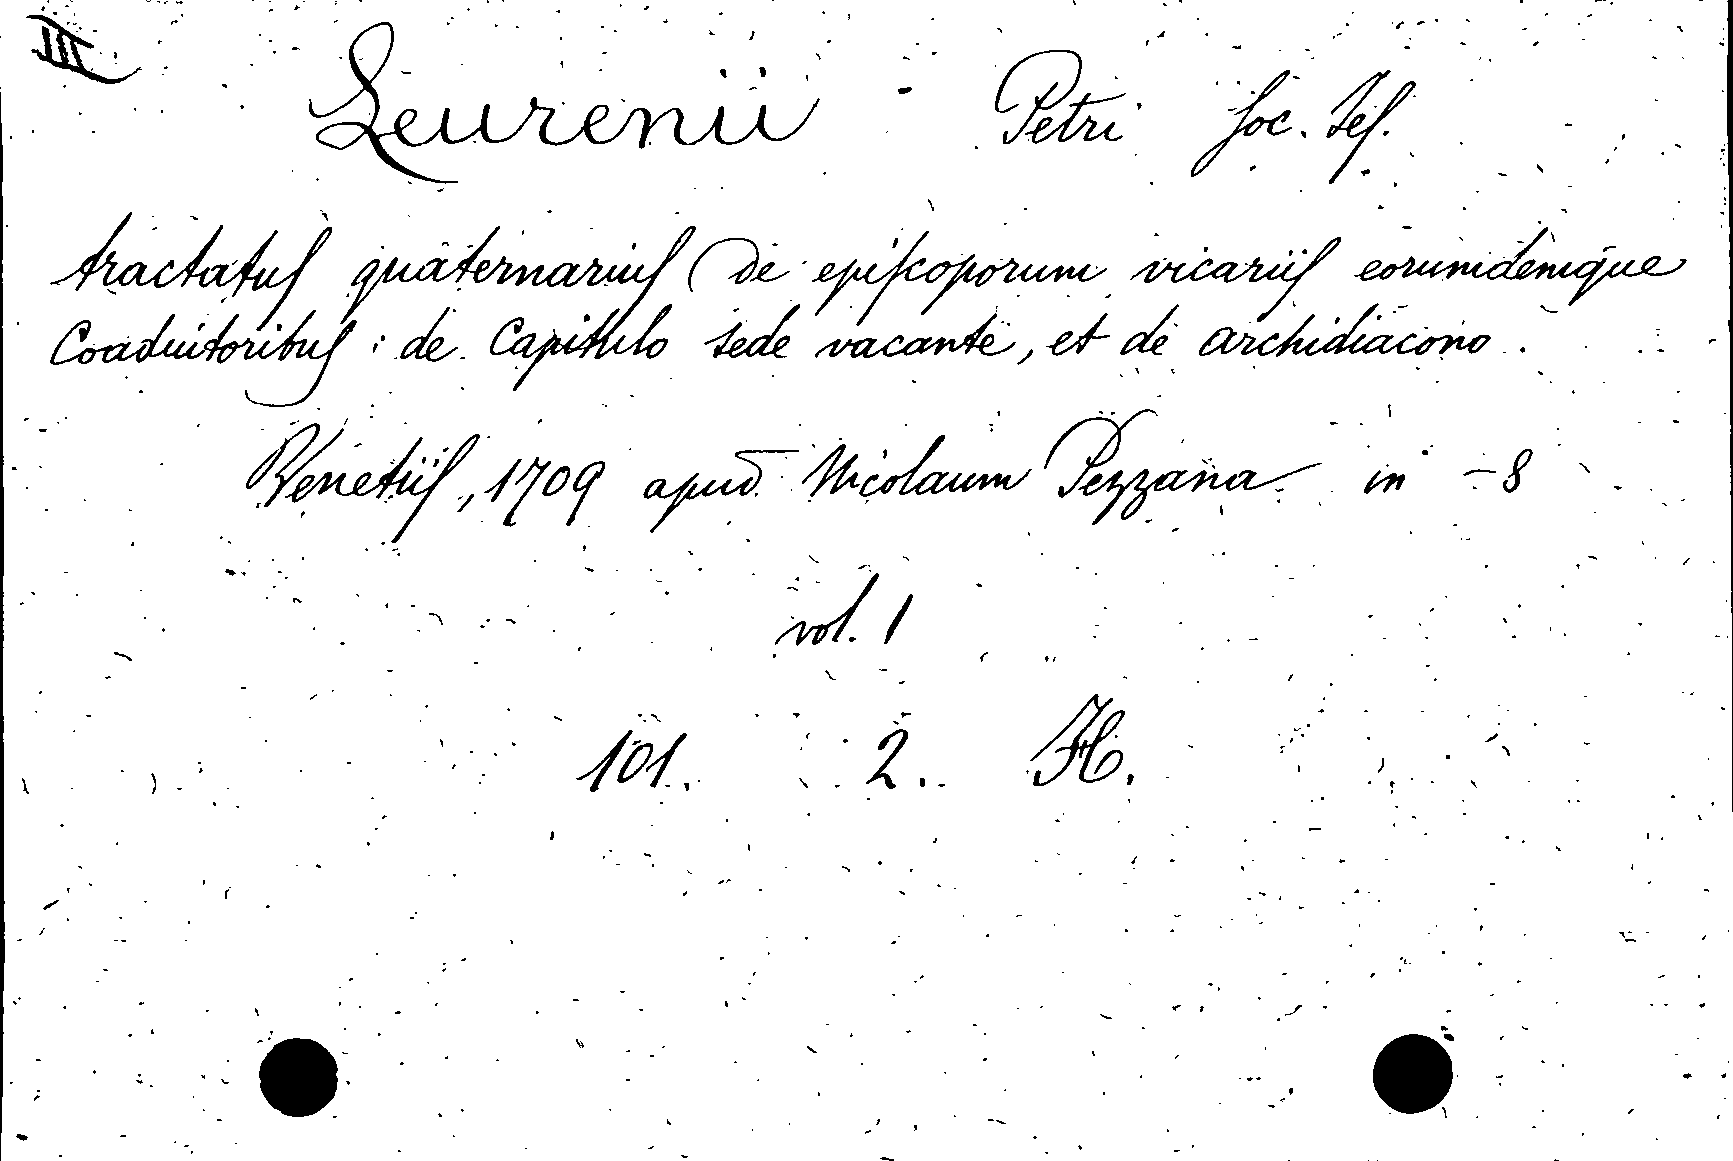 III
Leurenii Petri Soc. Jes.
tractatus quaternarius (de episcoporum vicariis eorumdemque
Coaduitoribus : de Capitulo sede vacante, et de archidiacono.
Venetiis, 1709 apud Nicolaum Pezzana in -8
vol. 1
101. 2. H.